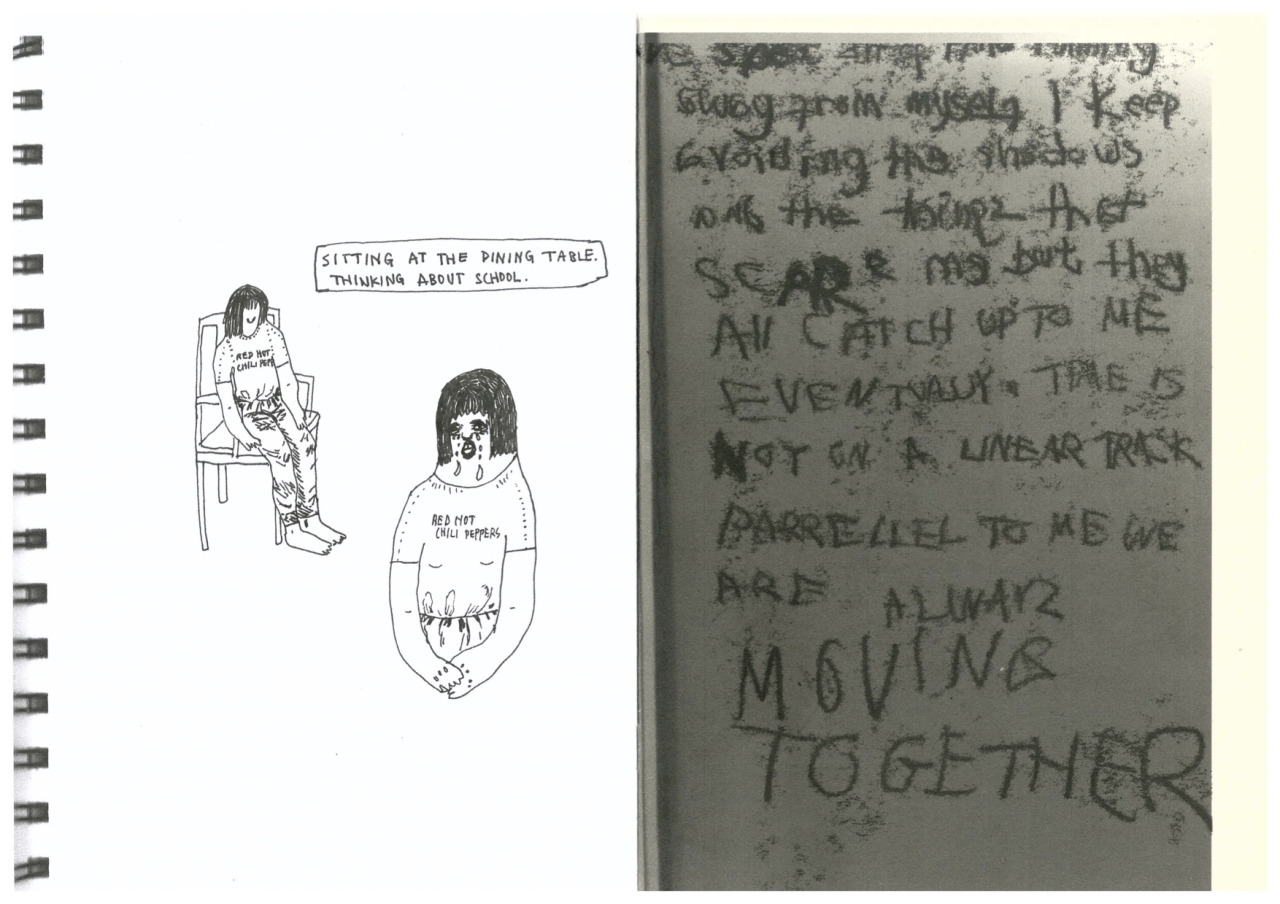 SITTING AT THE DINING TABLE.
THINKING ABOUT SCHOOL.
RED HOT
CHILI PEPE
RED HOT
CHILI PEPPERS
away from myself I keep
avoiding the shadows
and the things that
SCARE me but they
All CATCH UP TO ME
EVENTUALLY. TIME IS
NOT ON A LINEAR TRACK
PARRELLEL TO ME WE
ARE ALWAYS
MOVING
TOGETHER